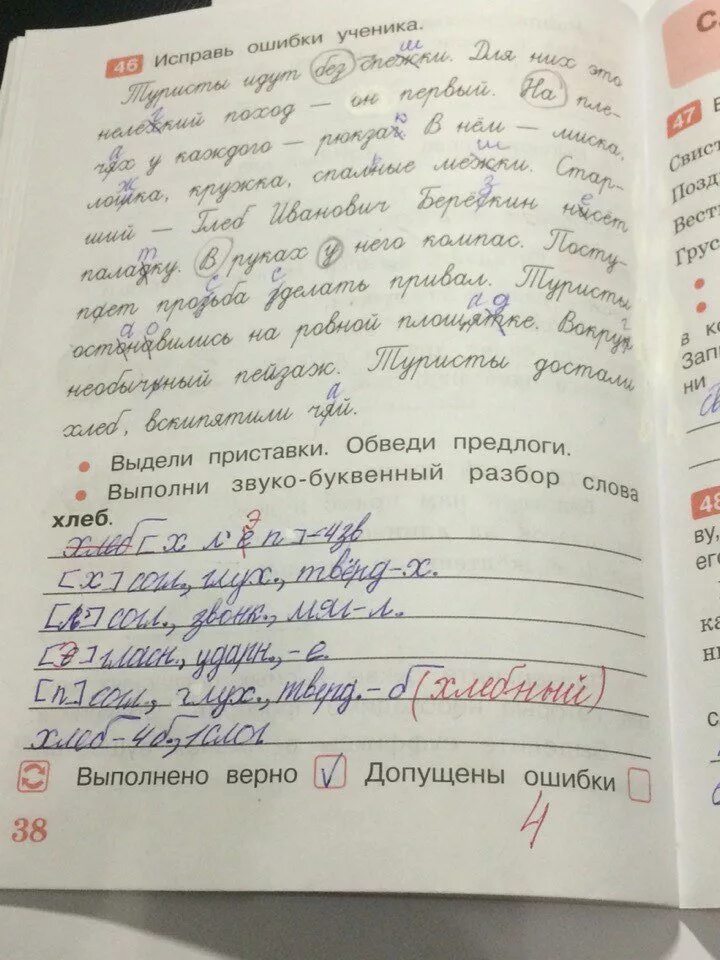 46 Исправь ошибки ученика.
Туристы идут без спежки. Для них это
нележкий поход – он первый. На пле-
чях у каждого – рюкзач. В нём – миска,
лошка, кружка, спалные межки. Стар-
ший – Глеб Иванович Берёскин нисёт
паладку. В руках у него компас. Посту-
пает прозьба зделать привал. Туристы
останавились на ровной площятке. Вокрук
необычный пейзаж. Туристы достали
хлеб, вскипятили чяй.
• Выдели приставки. Обведи предлоги.
• Выполни звуко-буквенный разбор слова
хлеб.
хлеб [х л' э п] - 4зв
[х] согл., глух., твёрд - х.
[л'] согл., звонк., мяг - л.
[э] гласн., ударн., - е.
[п] согл., глух., тверд. - б (хлебный)
хлеб - 4б., 1 слог
Выполнено верно √ Допущены ошибки
38
4
С
47
Свист
Позд
Вест
Грус
в к
Запи
ни
48
ву,
его
ка
н
с